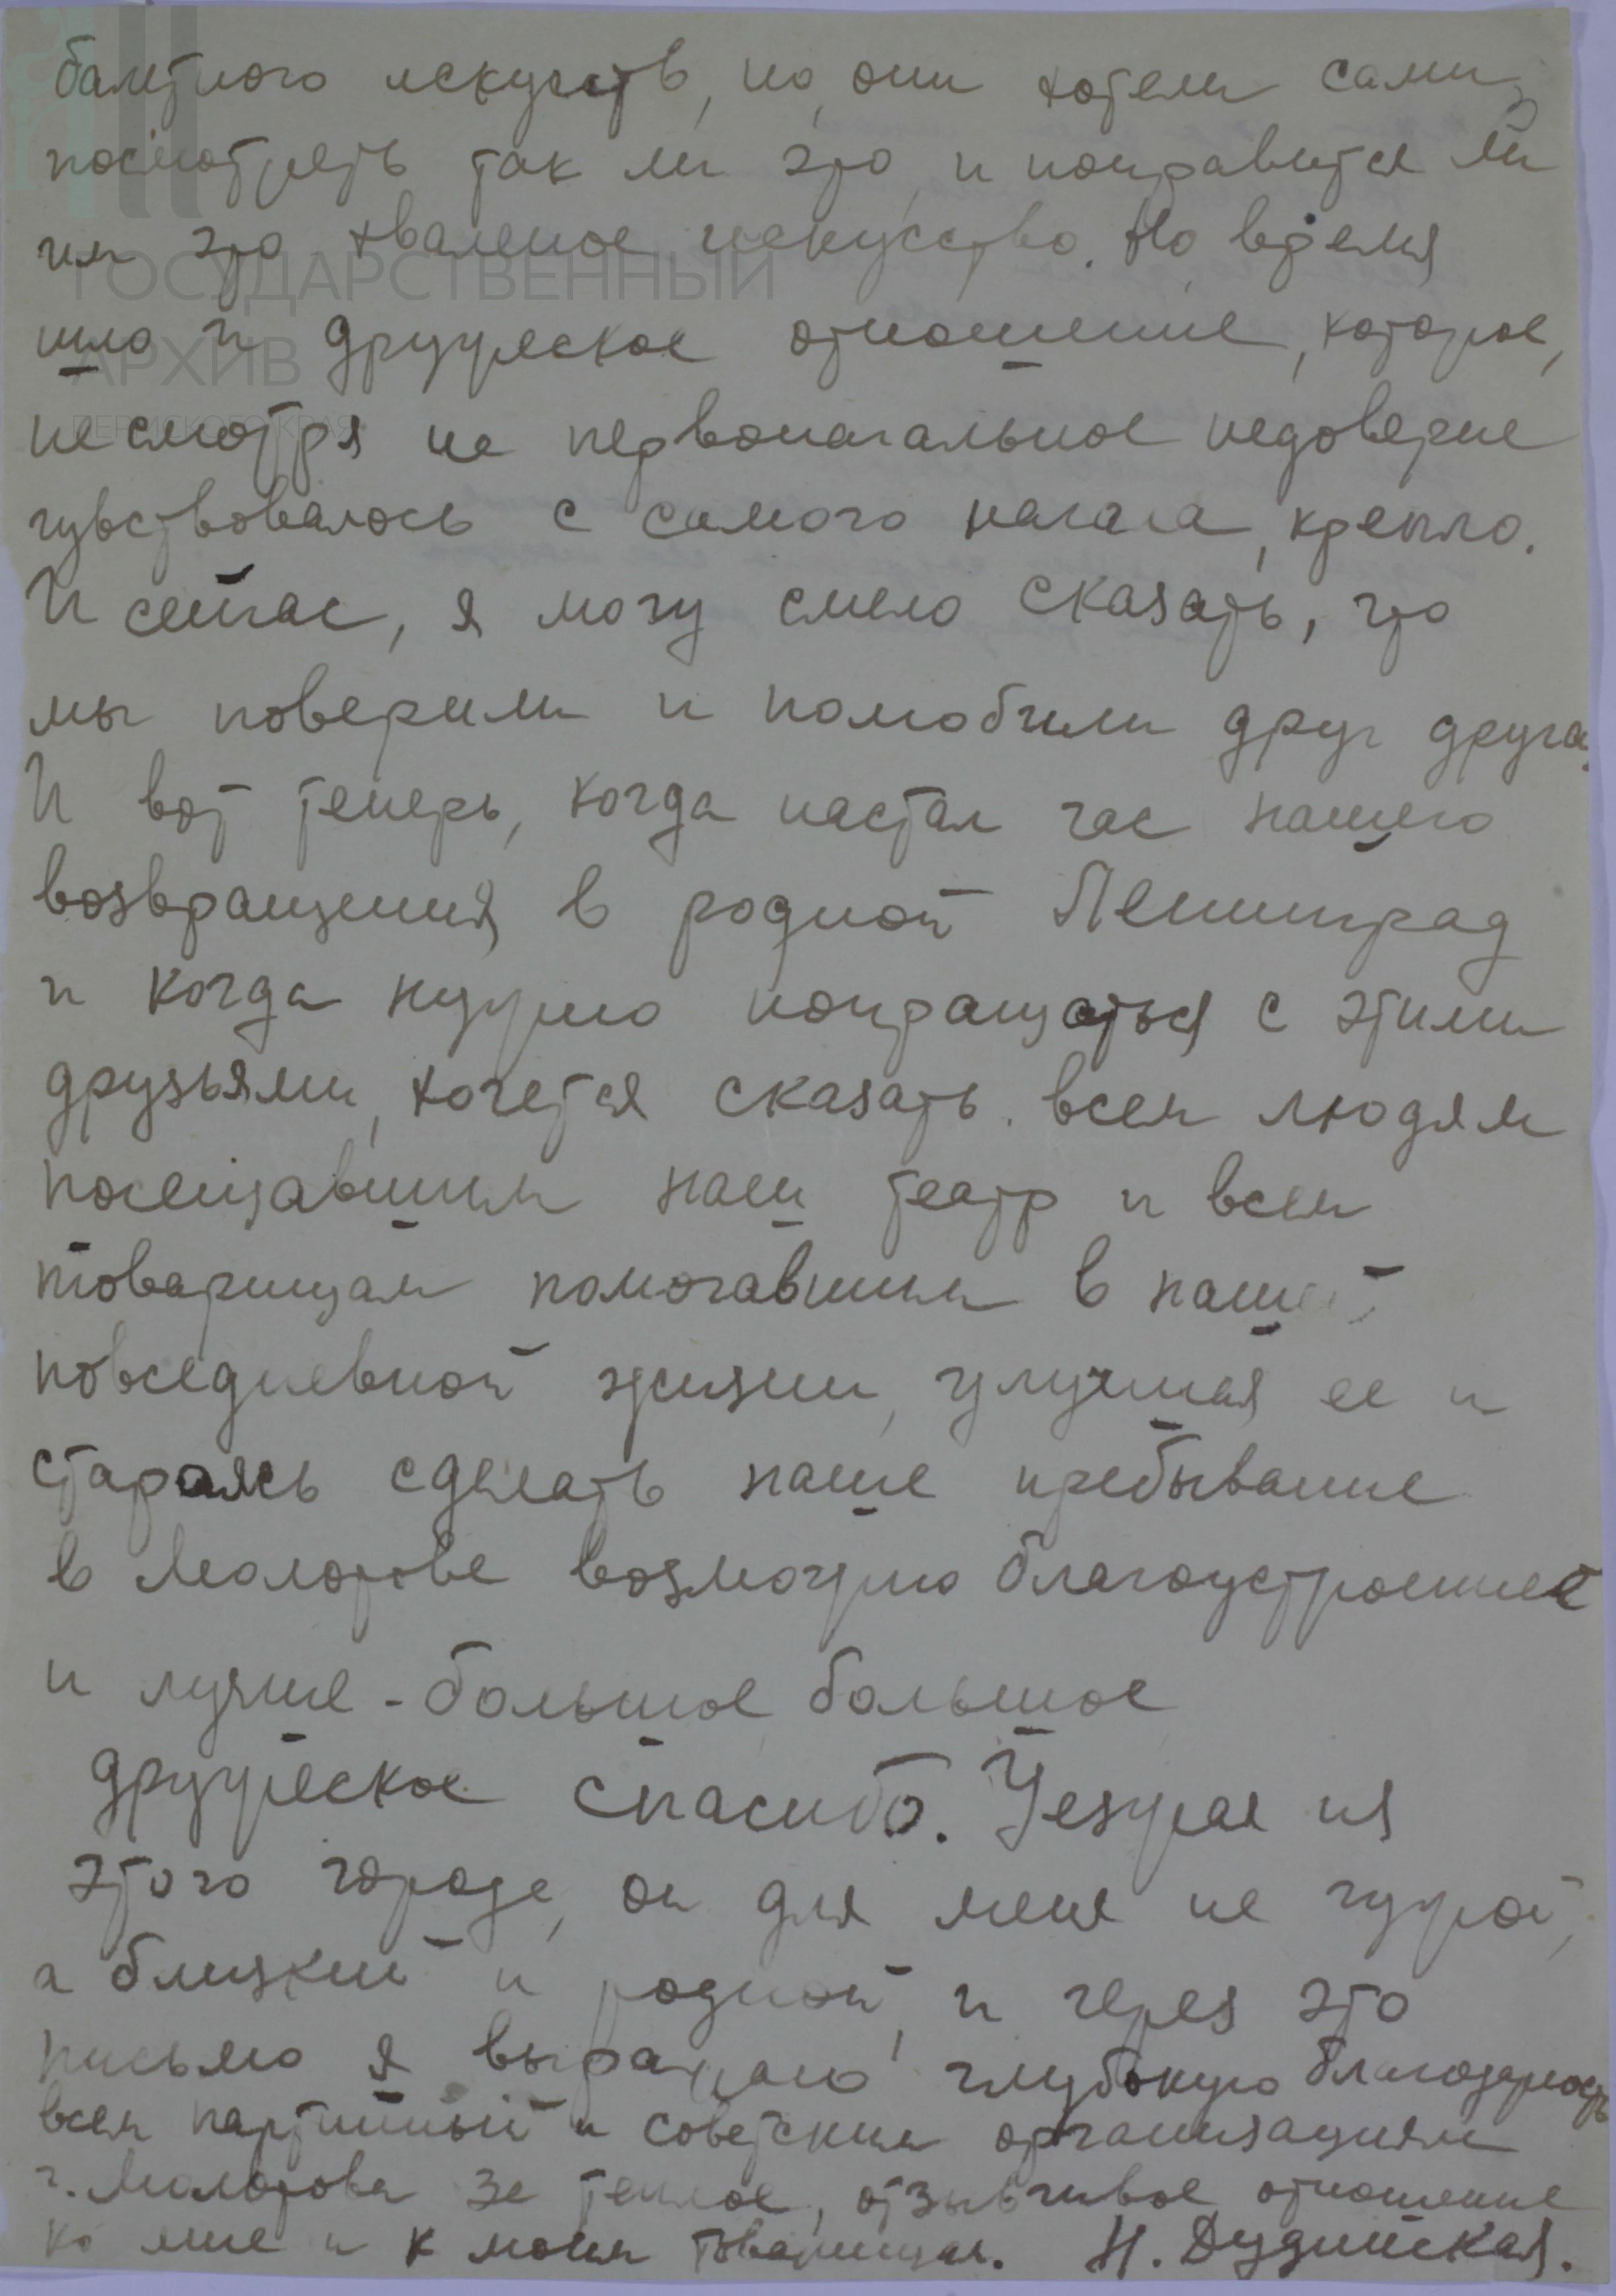 балетного искусств, но они хотели сами
посмотреть так ли это и понравится ли
им это хваленое искусство. Но время
шло и дружеское отношение, которое,
несмотря на первоначальное недоверие
чувствовалось с самого начала, крепло.
И сейчас, я могу смело сказать, что
мы поверили и полюбили друг друга.
И вот теперь, когда настал час нашего
возвращения в родной Ленинград
и когда нужно попращаться с этими
друзьями, хочется сказать всем людям
посещавшим наш театр и всем
товарищам помогавшим в нашей
повседневной жизни, улучшая ее и
стараясь сделать наше пребывание
в Молотове возможно благоустроеннее
и лучше - большое большое
дружеское спасибо. Уезжая из
этого города, он для меня не чужой,
а близкий и родной, и через это
письмо я выражаю глубокую благодарность
всем партийный и советским организациям
г. Молотова за теплое, отзывчивое отношение
ко мне и к моим товарищам. Н. Дудинская.
ГОСУДАРСТВЕННЫЙ
АРХИВ
ПЕРМСКОГО КРАЯ